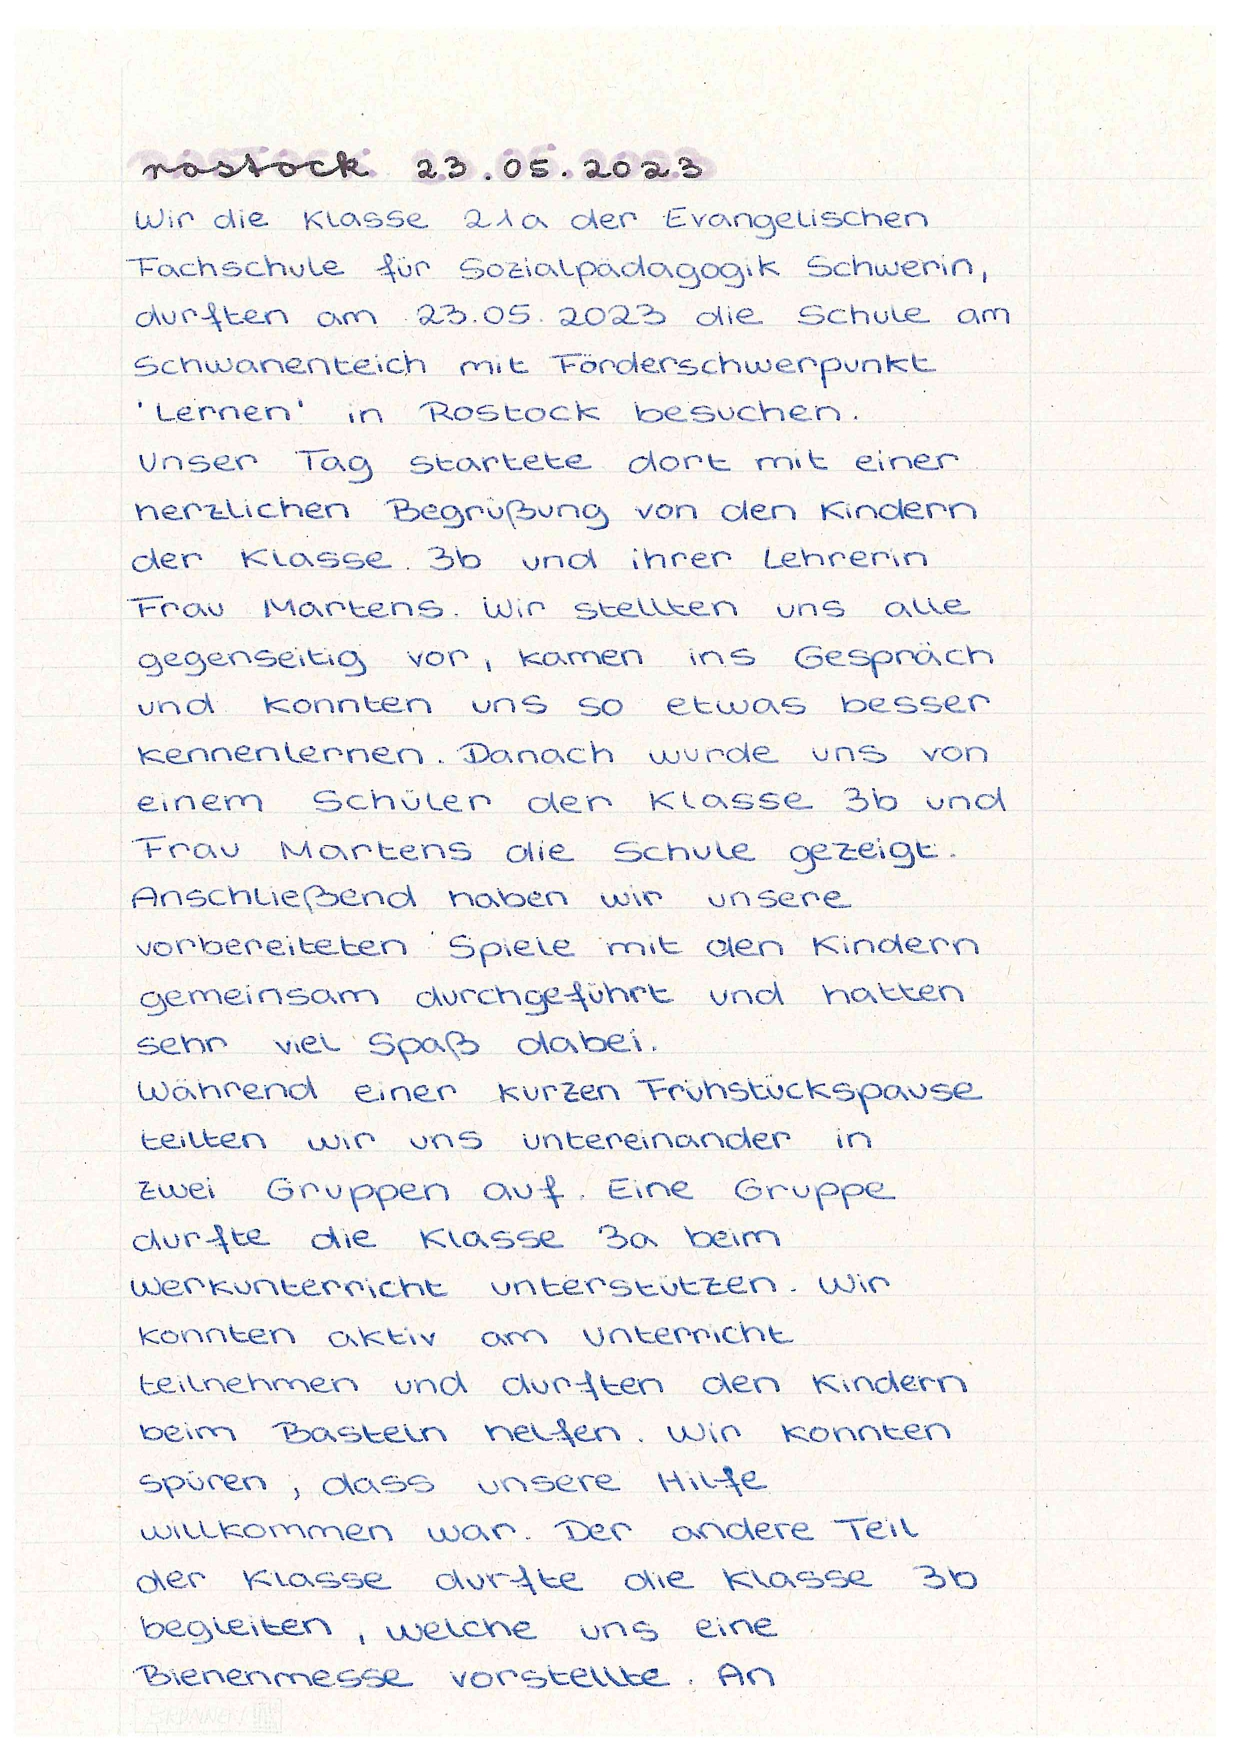 rostock 23.05.2023
Wir die Klasse 21a der Evangelischen
Fachschule für Sozialpädagogik Schwerin,
durften am 23.05.2023 die Schule am
Schwanenteich mit Förderschwerpunkt
'Lernen' in Rostock besuchen.
Unser Tag startete dort mit einer
herzlichen Begrüßung von den Kindern
der Klasse 3b und ihrer Lehrerin
Frau Martens. Wir stellten uns alle
gegenseitig vor, kamen ins Gespräch
und konnten uns so etwas besser
kennenlernen. Danach wurde uns von
einem Schüler der Klasse 3b und
Frau Martens die Schule gezeigt.
Anschließend haben wir unsere
vorbereiteten Spiele mit den Kindern
gemeinsam durchgeführt und hatten
sehr viel Spaß dabei.
Während einer kurzen Frühstückspause
teilten wir uns untereinander in
zwei Gruppen auf. Eine Gruppe
durfte die Klasse 3a beim
Werkunterricht unterstützen. Wir
konnten aktiv am Unterricht
teilnehmen und durften den Kindern
beim Basteln helfen. Wir konnten
spüren, dass unsere Hilfe
willkommen war. Der andere Teil
der Klasse durfte die Klasse 3b
begleiten, welche uns eine
Bienenmesse vorstellte. An
BRUNNEN